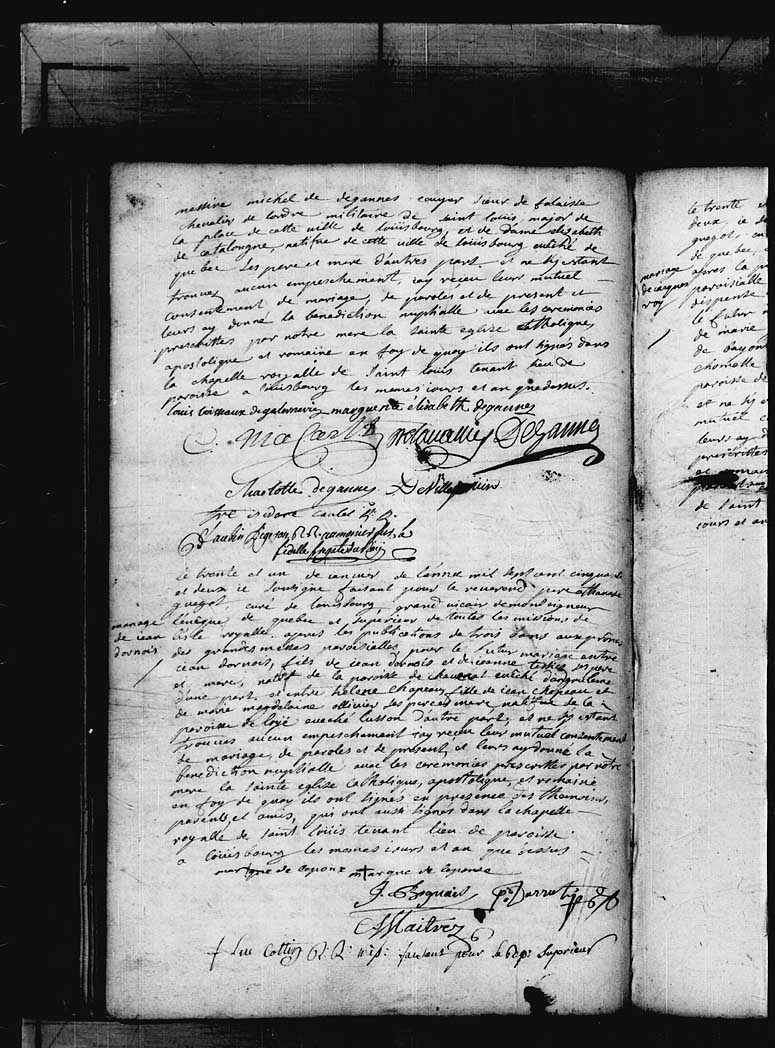 messire michel de degannes ecuyer sieur de falaise
chevalier de lordre militaire de saint louis, major de
la place de cette ville de louisbourg, et de Dame elisabeth
de catalougne, natifue de cette ville de louisbourg evêché de
quebec ses pere et mere d'autres part. et ne sy estant
trouvez aucun empeschement, iay receu leur mutuel
consentement de mariage, de paroles et de present et
leurs ay donné la benediction nuptialle avec les ceremonies
prescrittes par notre mere la sainte eglise catholique,
apostolique et romaine en foy de quoy ils ont signés dans
la chapelle royalle de saint louis tenant lieu de
paroisse a louisbourg les memes iours et an que dessus.
louis loiseaux marguerite élisabeth degannes
Degannes
Charlotte degannes
fre isidore caulet
fidelle
Le trente et un de ianvier de l'année mil sept cent cinquante
et deux ie soussigné faisant pour le reverend pere athanase
guegot, curé de louisbourg, grand vicaire de monseigneur
lévêque de quebec et superieur de toutes les missions de
lisle royalle. apres les publications de trois bans aux prônes
des grandes messes paroissialles, pour le futur mariage entre
iean dornois, fils de iean dornois et de ieanne ses pere
et mere, natif de la paroisse de evêché dangouleme
d'une part. et entre helene chapeau, fille de iean chapeau et
de marie magdelaine ollivier ses pere et mere, natifue de la
paroisse de evêché lusson d'autre part, et ne sy estant
trouvés aucun empeschement iay receu leur mutuel consentement
de mariage, de paroles et de present, et leurs ay donné la
benediction nuptialle avec les ceremonies prescrittes par notre
mere la sainte eglise catholique, apostolique, et romaine
en foy de quoy ils ont signés en presence des themoins,
parents, et amis, qui ont aussi signés dans la chapelle
royalle de saint louis tenant lieu de paroisse
a louisbourg les memes iours et an que dessus
marque de lepoux marque de leponse
Maitrez
f. luc faisant pour le superieur
mariage
de iean
dornois
le trente e
deux, ie s
guegot, cu
de quebec,
apres la p
paroissialle
dispense
le futur m
de marie
de bayonn
paroisse de
et ne sy e
mutuel c
leurs ay d
prescrittes
de saint
iours et an
mariage